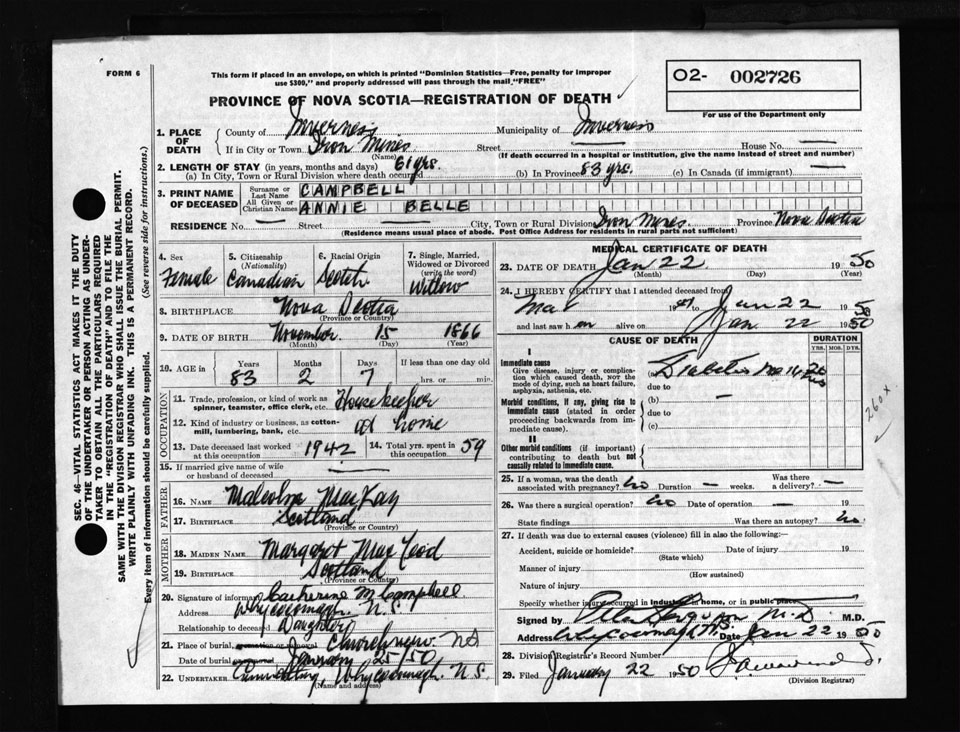 FORM 6
This form if placed in an envelope, on which is printed "Dominion Statistics—Free, penalty for improper
use $300," and properly addressed will pass through the mail "FREE"
O2- 002726
For use of the Department only
PROVINCE OF NOVA SCOTIA—REGISTRATION OF DEATH
1. PLACE OF DEATH
County of Inverness Municipality of Inverness
If in City or Town Iron Mines Street House No. —
(Name) (If death occurred in a hospital or institution, give the name instead of street and number)
2. LENGTH OF STAY (in years, months and days)
(a) In City, Town or Rural Division where death occurred 61 yrs. (b) In Province 83 yrs. (c) In Canada (if immigrant) —
3. PRINT NAME OF DECEASED
Surname or Last Name CAMPBELL
All Given or Christian Names ANNIE BELLE
RESIDENCE No. — Street City, Town or Rural Division Iron Mines Province Nova Scotia
(Residence means usual place of abode. Post Office Address for residents in rural parts not sufficient)
4. Sex Female
5. Citizenship (Nationality) Canadian
6. Racial Origin Scotch
7. Single, Married, Widowed or Divorced (write the word) Widow
8. BIRTHPLACE Nova Scotia
(Province or Country)
9. DATE OF BIRTH November 15 1866
(Month) (Day) (Year)
10. AGE in Years Months Days If less than one day old
83 2 7 hrs. or min.
OCCUPATION
11. Trade, profession, or kind of work as
spinner, teamster, office clerk, etc. Housekeeper
12. Kind of industry or business, as cotton-
mill, lumbering, bank, etc. at home
13. Date deceased last worked at this occupation 1942
14. Total yrs. spent in this occupation 59
15. If married give name of wife
or husband of deceased —
FATHER
16. NAME Malcolm MacKay
17. BIRTHPLACE Scotland
(Province or Country)
MOTHER
18. MAIDEN NAME Margaret MacLeod
19. BIRTHPLACE Scotland
(Province or Country)
20. Signature of informant Catherine M Campbell
Address Whycocomagh. N.S.
Relationship to deceased Daughter
21. Place of burial, cremation or removal Churchview NS
Date of burial January 25/50
22. UNDERTAKER Whycocomagh. N.S.
(Name and address)
MEDICAL CERTIFICATE OF DEATH
23. DATE OF DEATH Jan 22 1950
(Month) (Day) (Year)
24. I HEREBY CERTIFY that I attended deceased from
Jan 22 1950
and last saw h er alive on Jan 22 1950
CAUSE OF DEATH
DURATION
YRS. MOS. DYS.
I
Immediate cause
Give disease, injury or complica-
tion which caused death, not the
mode of dying, such as heart failure,
asphyxia, asthenia, etc.
(a) Diabetes
due to
Morbid conditions, if any, giving rise to
immediate cause (stated in order
proceeding backwards from im-
mediate cause).
(b) —
due to
(c)
II
Other morbid conditions (if important)
contributing to death but not
causally related to immediate cause.
260 x
25. If a woman, was the death
associated with pregnancy? No Duration — weeks. Was there a delivery? —
26. Was there a surgical operation? No Date of operation — 19
State findings Was there an autopsy? No
27. If death was due to external causes (violence) fill in also the following:
Accident, suicide or homicide? Date of injury 19
(State which)
Manner of injury
(How sustained)
Nature of injury
Specify whether injury occurred in industry, in home, or in public place
Signed by M.D. M.D.
Address Whycocomagh N.S. Date Jan 22 1950
28. Division Registrar's Record Number
29. Filed January 22 1950
(Division Registrar)
SEC. 46—VITAL STATISTICS ACT MAKES IT THE DUTY
OF THE UNDERTAKER OR PERSON ACTING AS UNDER-
TAKER TO OBTAIN ALL THE PARTICULARS REQUIRED
IN THE "REGISTRATION OF DEATH" AND TO FILE THE
SAME WITH THE DIVISION REGISTRAR WHO SHALL ISSUE THE BURIAL PERMIT.
WRITE PLAINLY WITH UNFADING INK. THIS IS A PERMANENT RECORD.
Every item of information should be carefully supplied. (See reverse side for instructions.)